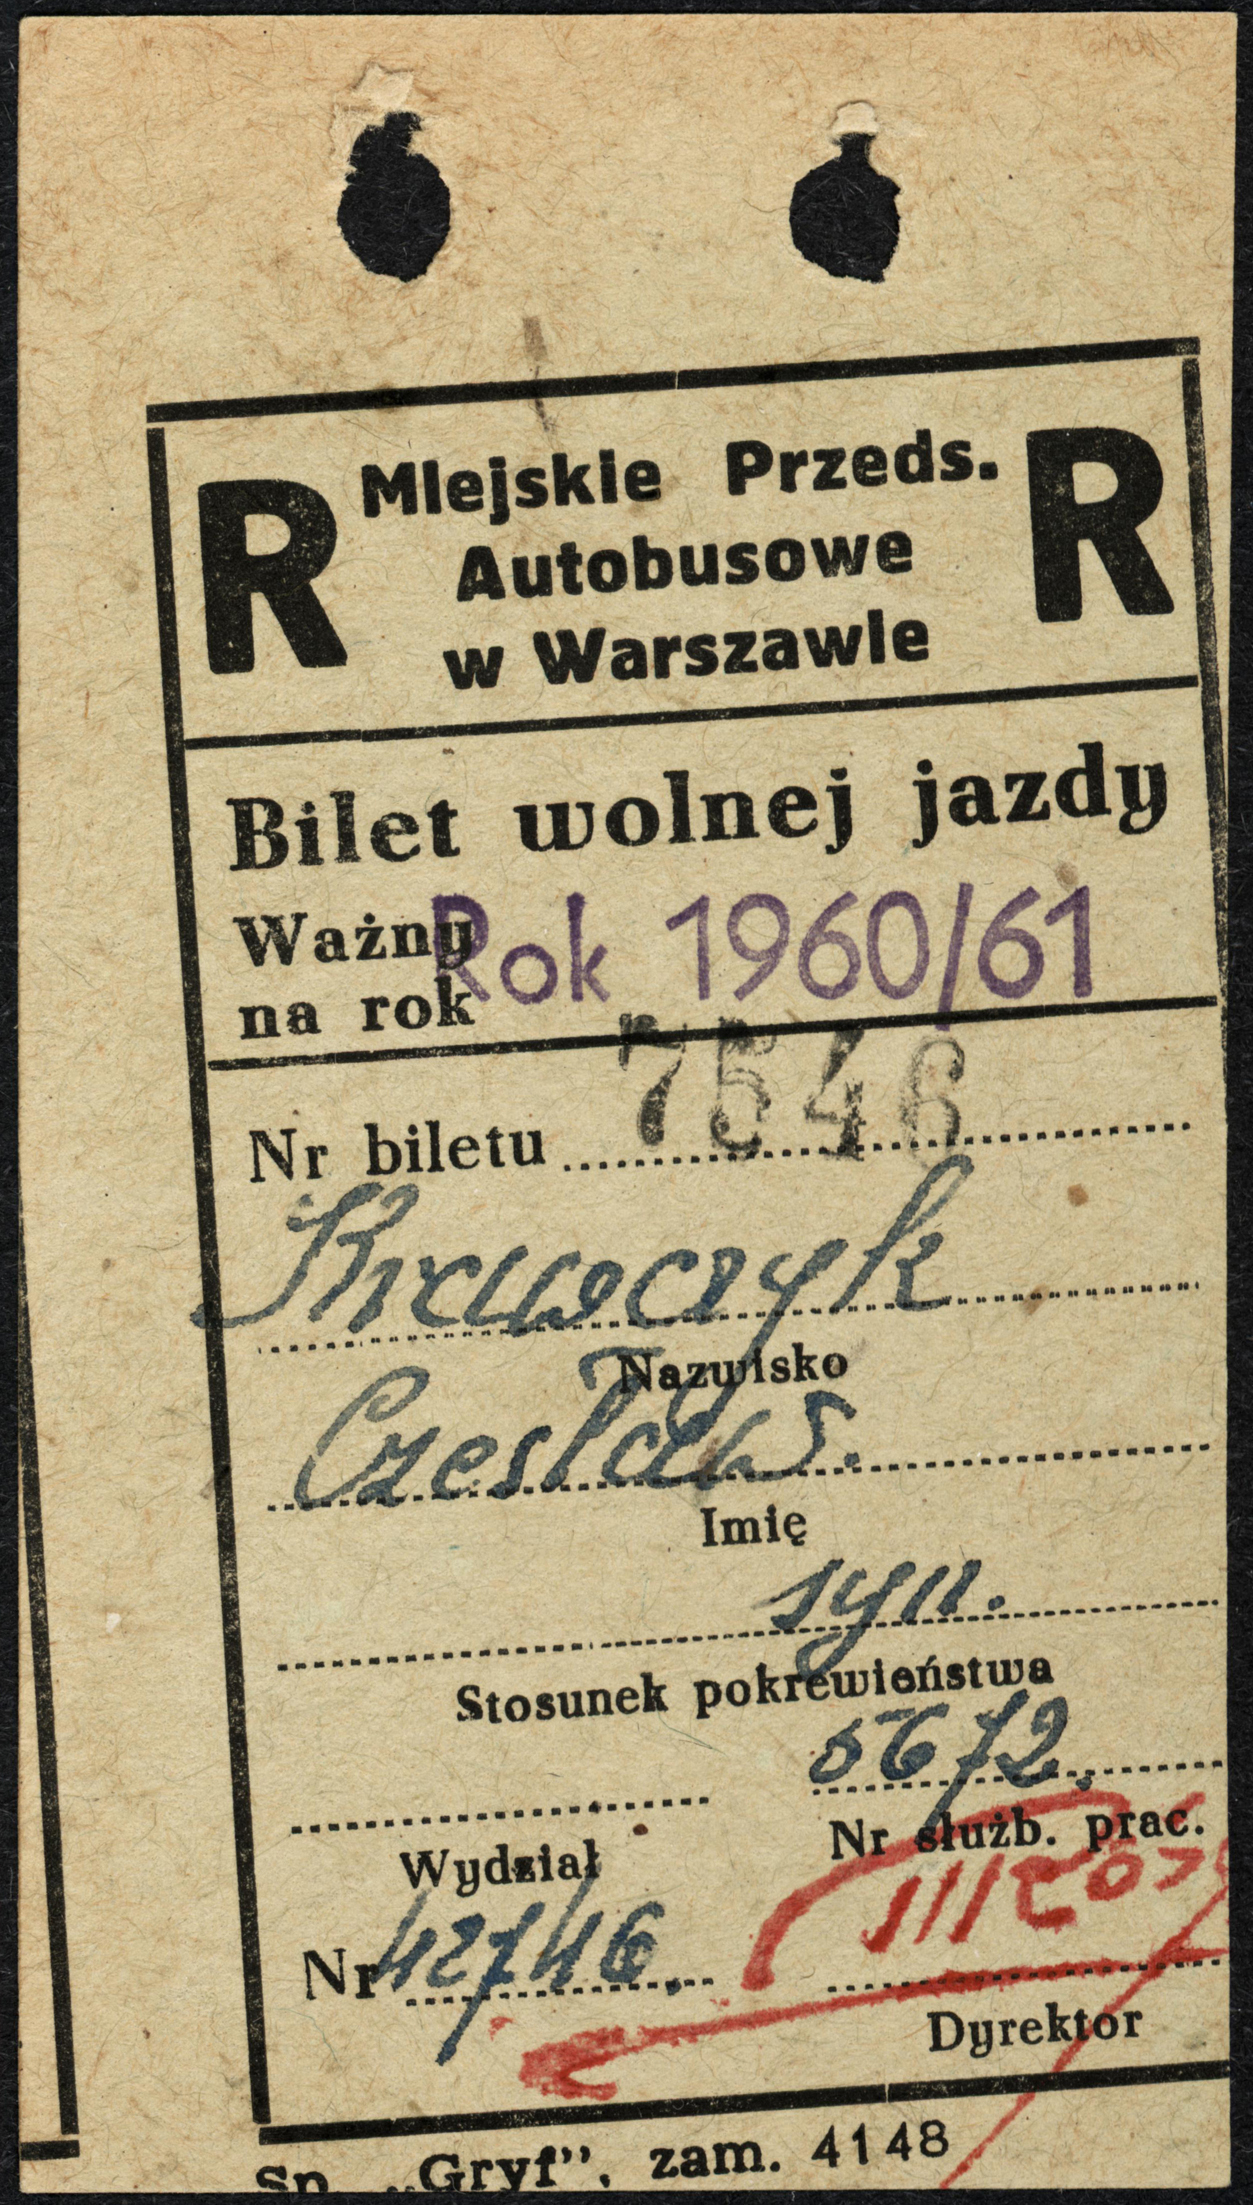 R Miejskie Przeds. R
Autobusowe
w Warszawie
Bilet wolnej jazdy
Ważny
na rok Rok 1960/61
Nr biletu 7546
Krawczyk
Nazwisko
Czesław.
Imię
syn.
Stosunek pokrewieństwa
5672.
Wydział Nr służb. prac.
Nr 42746.
Dyrektor
Sp. „Gryf”, zam. 4148